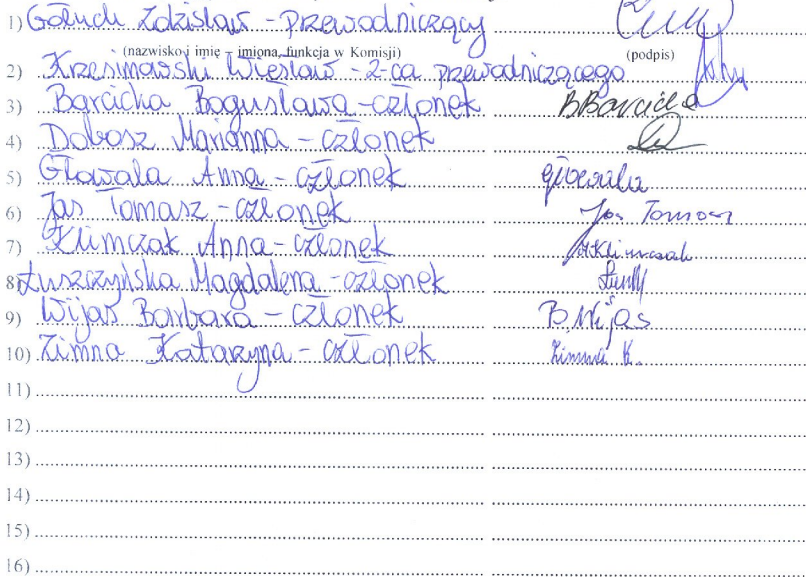 1) Gołuch Zdzisław - przewodniczący
(nazwisko i imię – imiona, funkcja w Komisji) (podpis)
2) Krzesimowski Wiesław - z-ca przewodniczącego
3) Barcicka Bogusława - członek BBarcicka
4) Dobosz Marianna - członek
5) Głowala Anna - członek Głowala
6) Jas Tomasz - członek Jas Tomasz
7) Klimczak Anna - członek AKlimczak
8) Łuszczyńska Magdalena - członek
9) Wijas Barbara - członek B. Wijas
10) Zimna Katarzyna - członek Zimna K.
11)
12)
13)
14)
15)
16)